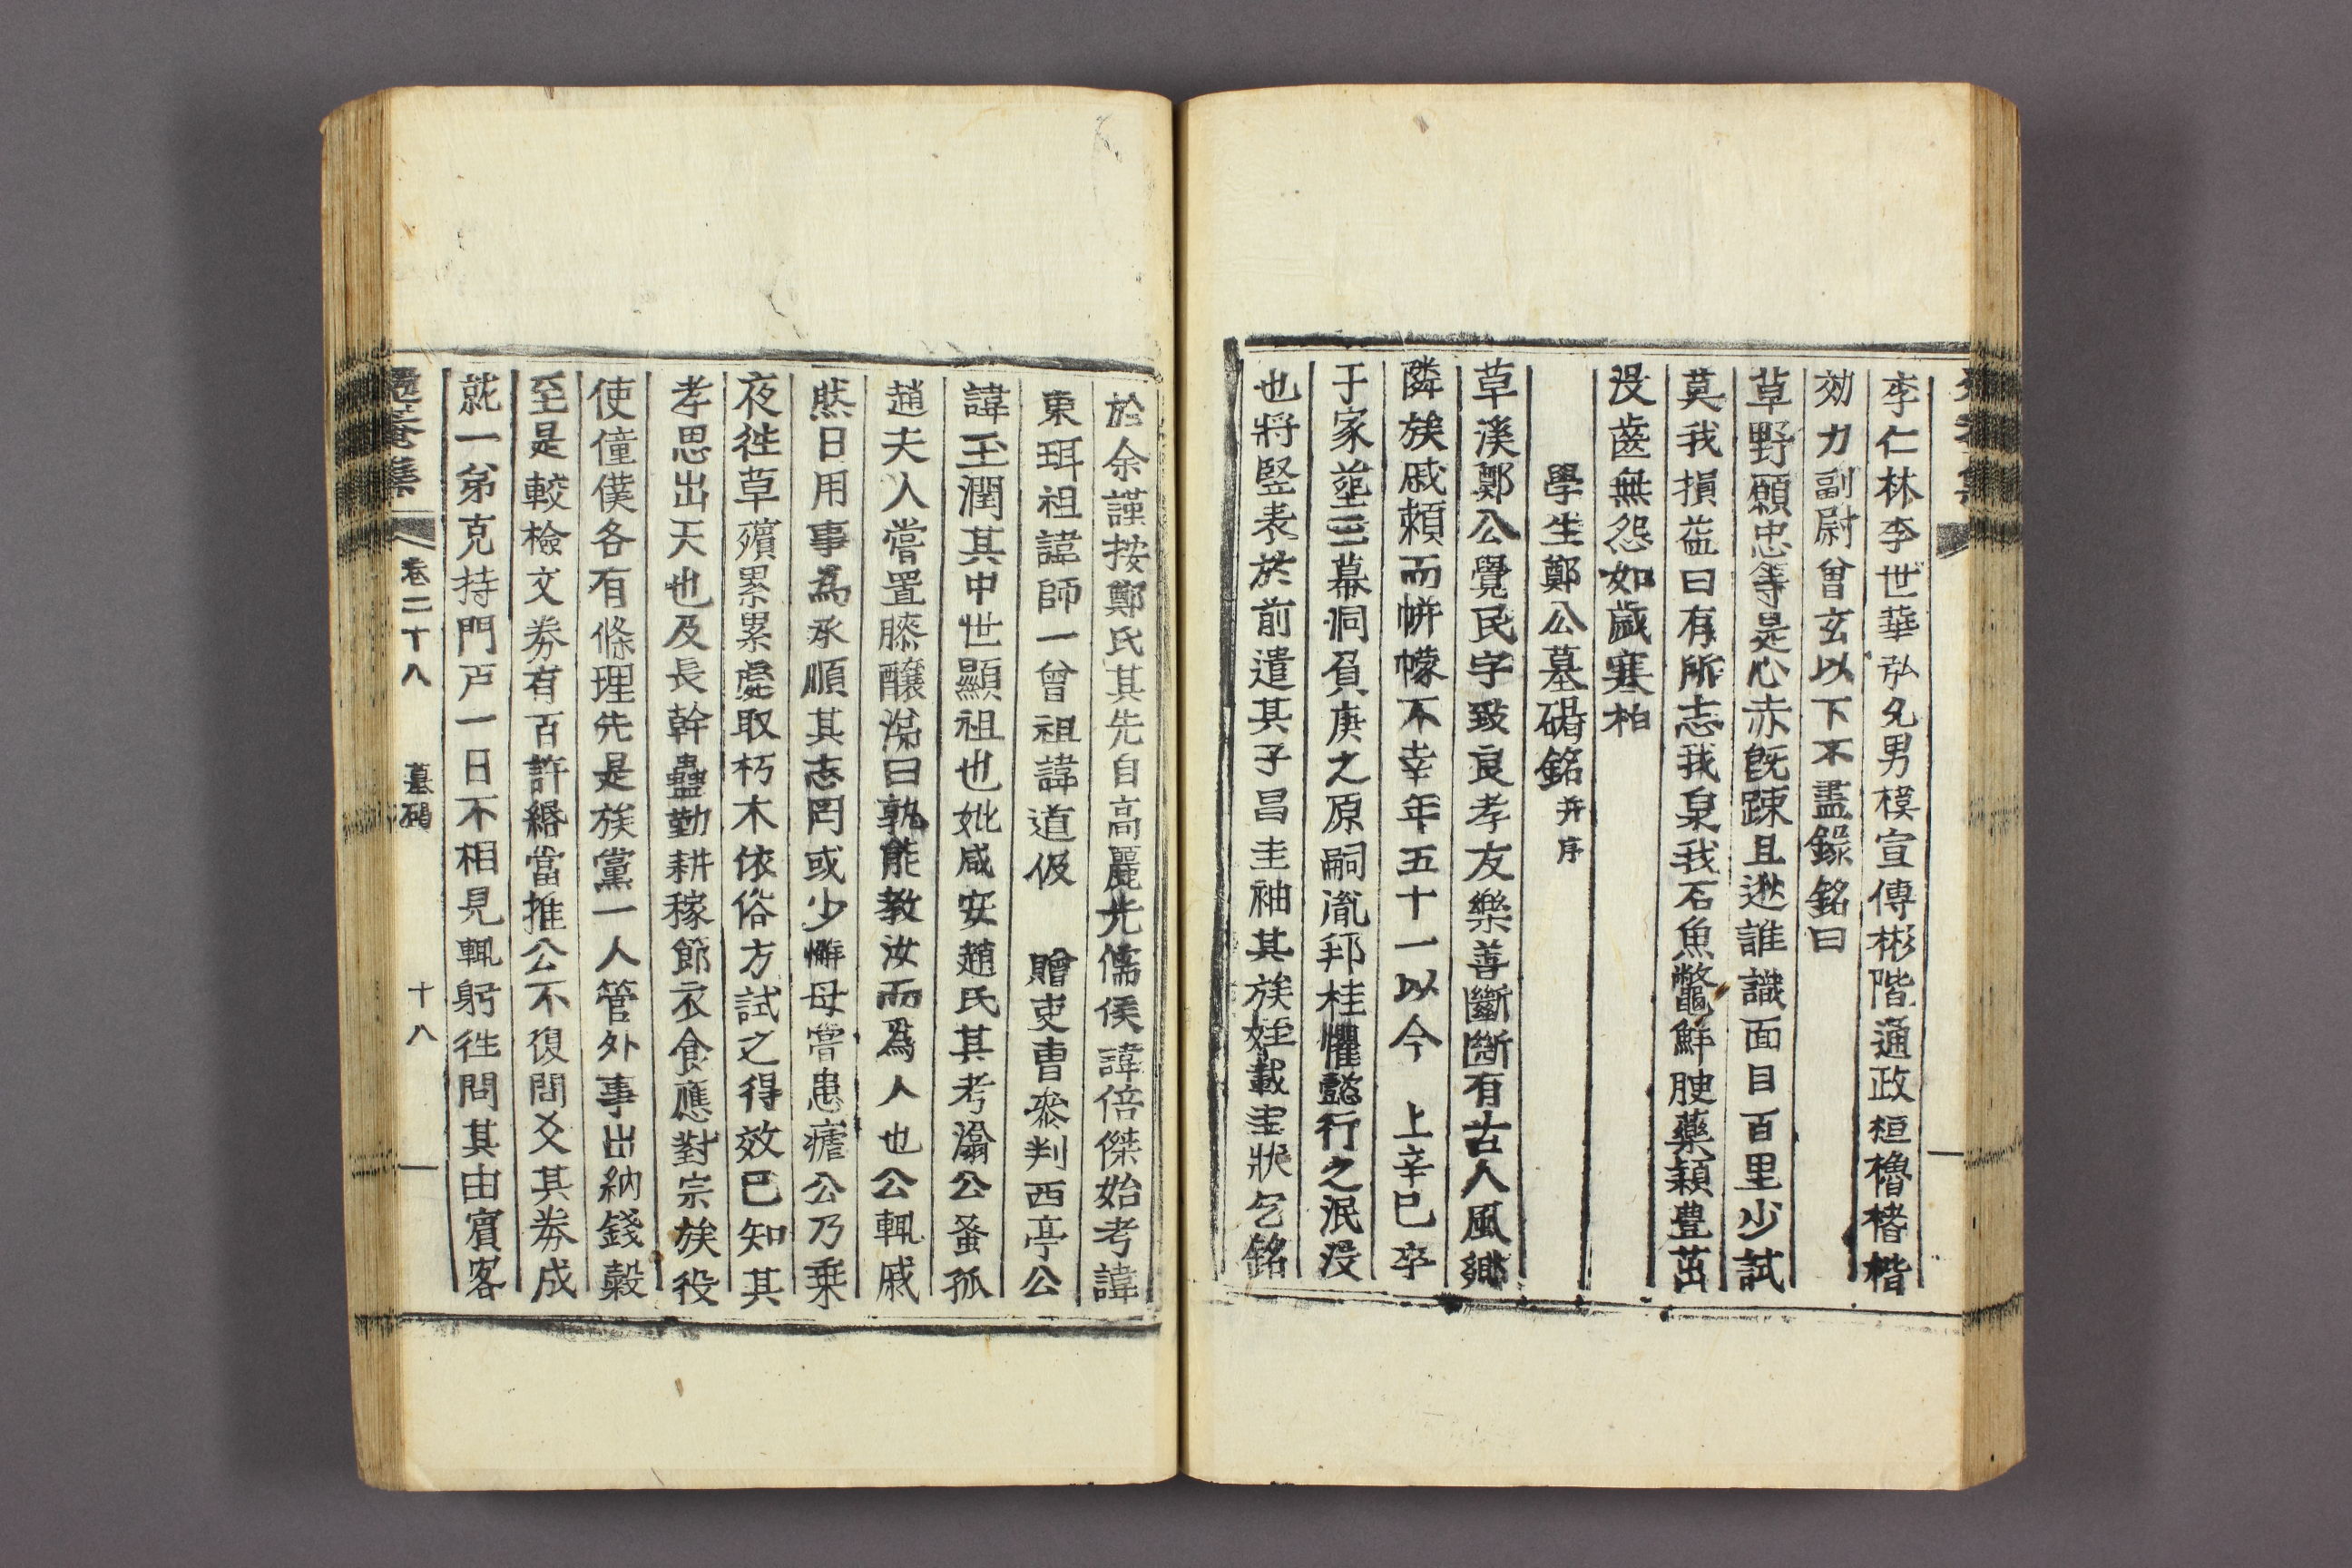 李仁林李世華弘允男模宣傳彬階通政桓櫓楮楷
効力副尉曾玄以下不盡錄銘曰
草野願忠等是心赤旣踈且逖誰識面目百里少試
莫我損益曰有所志我泉我石魚鼈鮮腴藥穎豊茁
沒齒無怨如歲寒柏
學生鄭公墓碣銘 幷序
草溪鄭公覺民字致良孝友樂善斷斷有古人風鄉
隣族戚賴而帡幪不幸年五十一以今 上辛巳卒
于家塟三幕洞負庚之原嗣胤邦桂懼懿行之泯沒
也將竪表於前遣其子昌圭袖其族姪載圭狀乞銘
於余謹按鄭氏其先自高麗光儒侯諱倍傑始考諱
東珥祖諱師一曾祖諱道伋 贈吏曹參判西亭公
諱至潤其中世顯祖也妣咸安趙氏其考瀹公蚤孤
趙夫人嘗置膝釀涕曰孰能教汝而爲人也公輒戚
然日用事爲承順其志罔或少懈母嘗患瘧公乃乘
夜徃草殯累累處取朽木依俗方試之得效已知其
孝思出天也及長幹蠱勤耕稼節衣食應對宗族役
使僮僕各有條理先是族黨一人管外事出納錢穀
至是較檢文券有百許緡當推公不復問爻其券成
就一弟克持門戶一日不相見輒躬徃問其由賓客
卷二十八 墓碣 十八